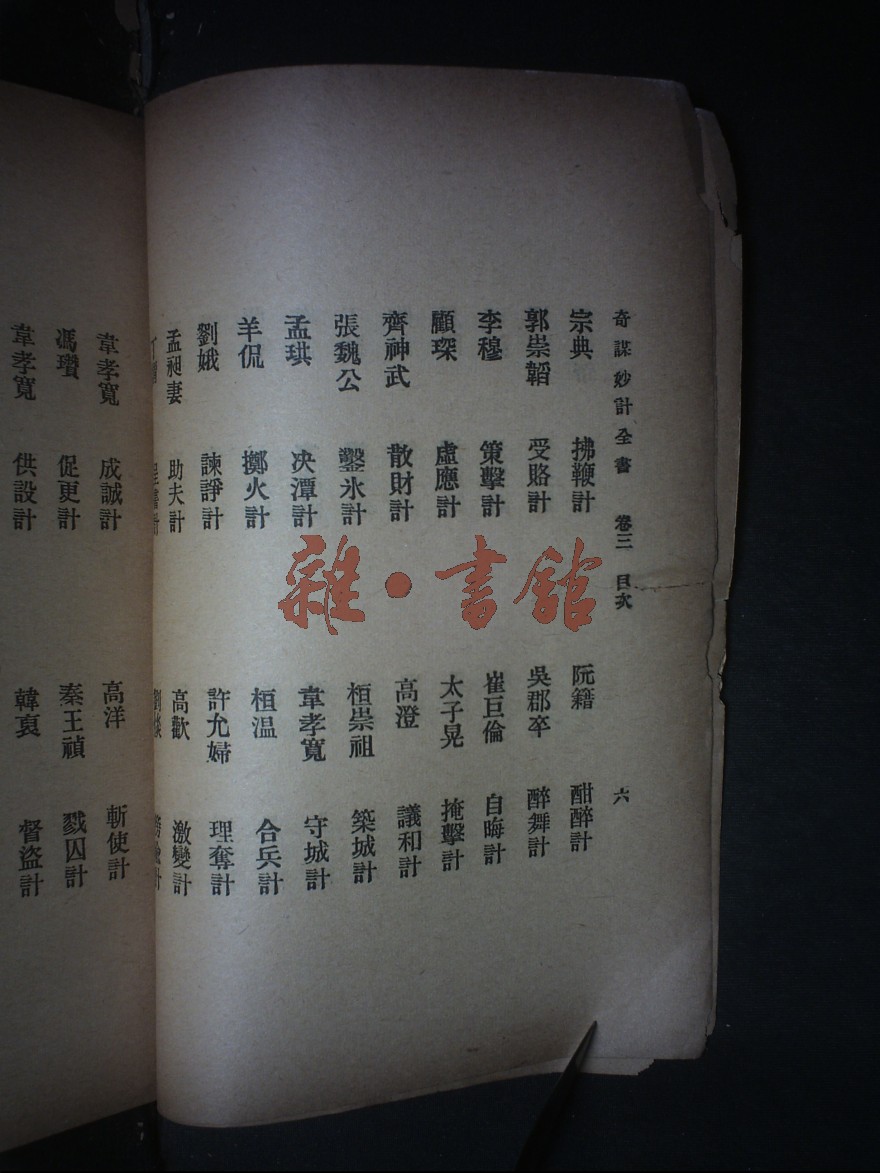 奇謀妙計全書 卷三 目次 六
宗典 拂鞭計 阮籍 酣醉計
郭崇韜 受賂計 吳郡卒 醉舞計
李穆 策擊計 崔巨倫 自晦計
顧琛 虛應計 太子晃 掩擊計
齊神武 散財計 高澄 議和計
張魏公 鑿氷計 桓崇祖 築城計
孟珙 决潭計 韋孝寬 守城計
羊侃 擲火計 桓温 合兵計
劉娥 諫諍計 許允婦 理奪計
孟昶妻 助夫計 高歡 激變計
計 計
韋孝寬 成誠計 高洋 斬使計
馮瓚 促更計 秦王禎 戮囚計
韋孝寬 供設計 韓裒 督盜計
雜·書館